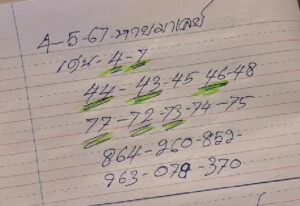 4-5-67.หวยมาเลย์
เด่น-4-7
44-43-45 46-48
77-72-73-74-75
864-260-852-
963-079-370